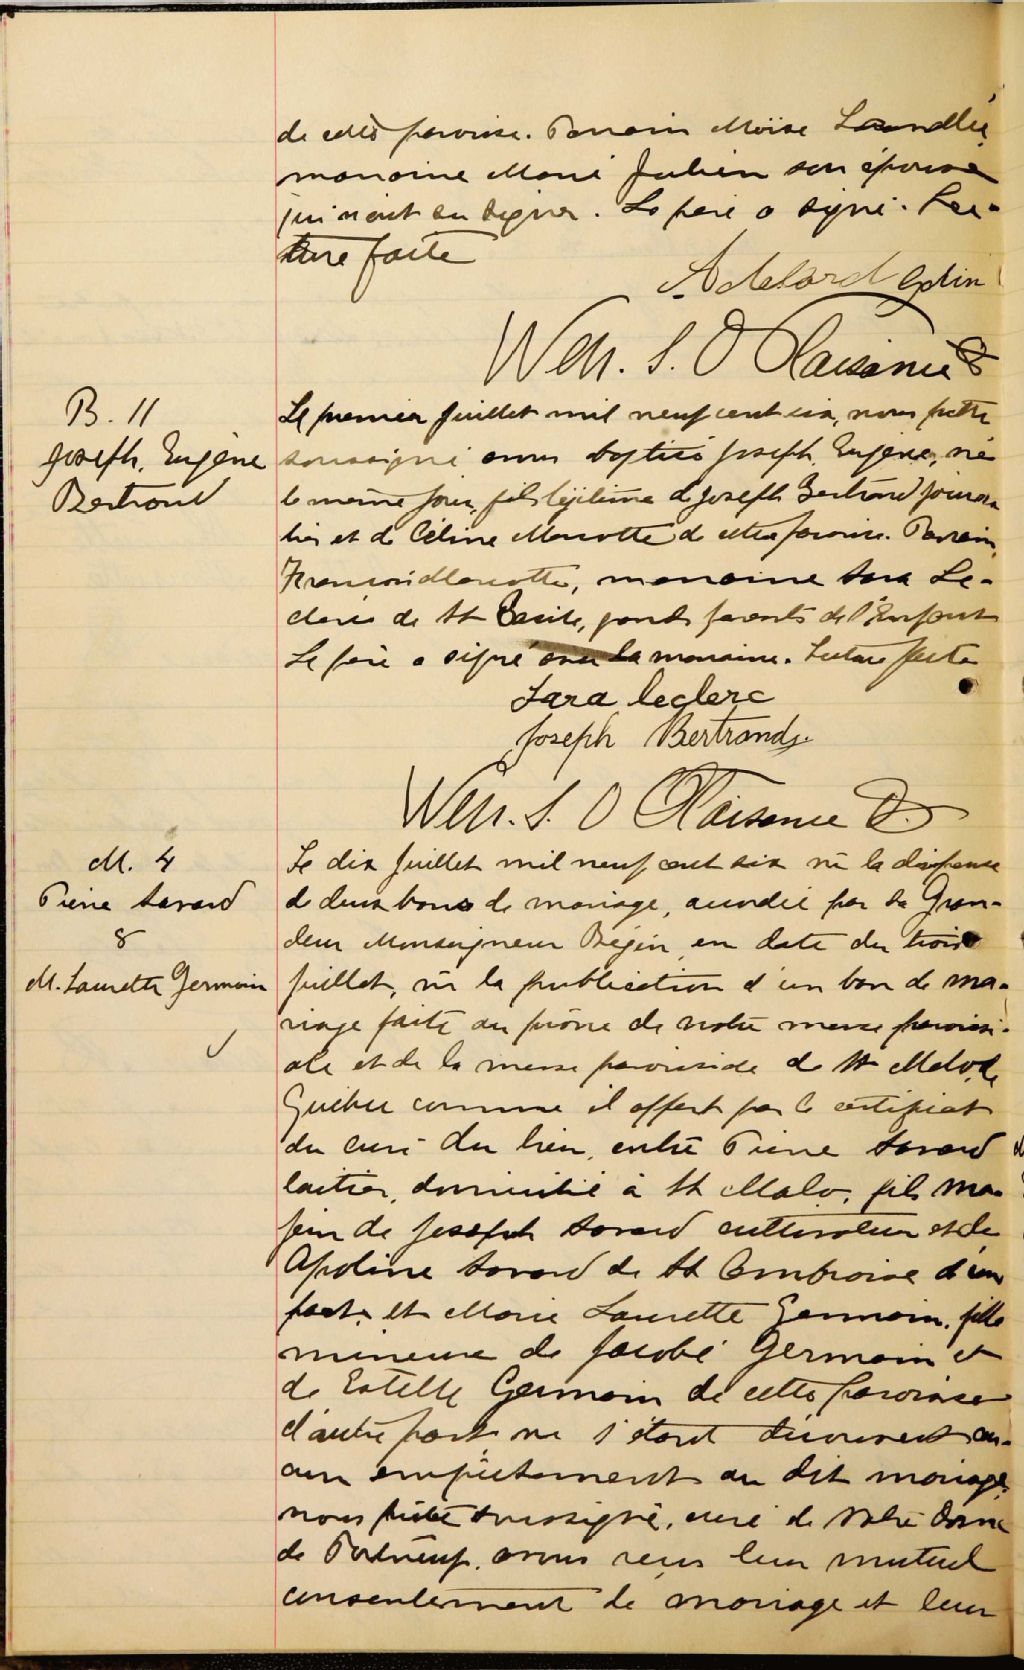 de cette paroisse. Parrain Moïse
marraine Marie Julien son épouse
qui n'ont su signer. Le père a signé. Lec-
ture faite
Adelard
Wen. S. O Plaisance
B. 11
Joseph, Eugène
Bertrand
Le premier Juillet mil neuf cent six, nous prêtre
soussigné avons baptisé Joseph, Eugène, né
le même jour, fils légitime de Joseph Bertrand journa
lier et de Céline Marcotte de cette paroisse. Parrain,
François Marcotte, marraine Sara Le-
clerc de St Basile, grands parents de l'Enfant
Le père a signé avec la marraine. Lecture faite
Sara leclerc
Joseph Bertrand
Wen. S. O Plaisance
M. 4
Pierre Savard
&
M. Laurette Germain
Le dix Juillet mil neuf cent six vu la dispense
de deux bans de mariage, accordée par Sa Gran-
deur Monseigneur Bégin, en date du trois
juillet, vu la publication d'un ban de ma-
riage faite au prône de notre messe paroissi-
ale et de la messe paroissiale de St Malo de
Québec comme il appert par le certificat
du curé du lieu, entre Pierre Savard
laitier, domicilié à St Malo, fils ma-
jeur de Joseph Savard cultivateur et de
Apoline Savard de St Ambroise d'une
part, et Marie Laurette Germain, fille
mineure de Jacobé Germain et
de Estelle Germain de cette paroisse
d'autre part, ne s'étant découvert au-
cun empêchement au dit mariage,
nous prêtre soussigné, curé de Notre Dame
de Portneuf, avons reçu leur mutuel
consentement de mariage et leur